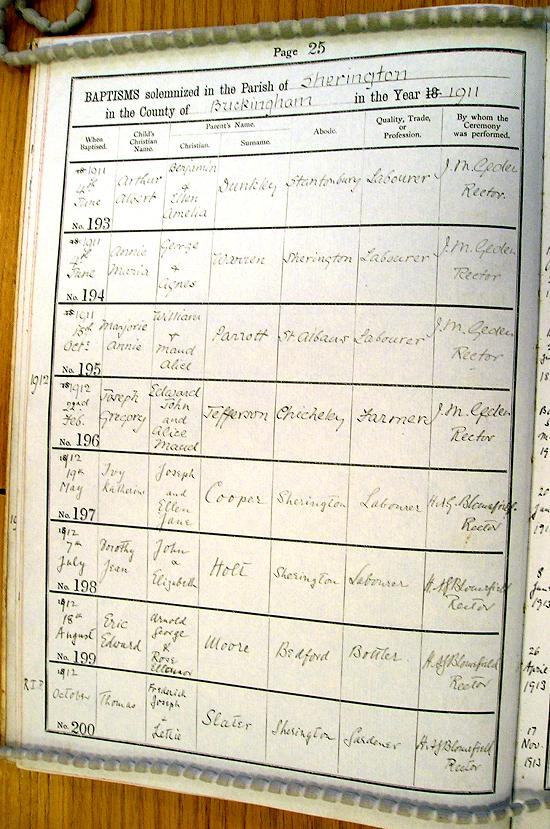 Page 25
BAPTISMS solemnized in the Parish of Sherington
in the County of Buckingham in the Year 18 1911
When Baptised. Child's Christian Name. Parent's Name. Christian. Surname. Abode. Quality, Trade, or Profession. By whom the Ceremony was performed.
1911 4th June Arthur Albert Benjamin & Ellen Amelia Dunkley Stantonbury Labourer J. M. Geden Rector.
No. 193
1911 June Annie Maria George & Agnes Warren Sherington Labourer J. M. Geden Rector
No. 194
1911 15th Octr Marjorie Annie William & Maud Alice Parrott St Albans Labourer J. M. Geden Rector
No. 195
1912
1912 22nd Feb. Joseph Gregory Edward John and Alice Maud Jefferson Chicheley Farmer J. M. Geden Rector
No. 196
1912 19th May Ivy Katherine Joseph and Ellen Jane Cooper Sherington Labourer H. A. G. Blomefield Rector
No. 197
1912 7th July Dorothy Jean John & Elizabeth Holt Sherington Labourer H. A. G. Blomefield Rector
No. 198
1912 18th August Eric Edward Arnold George & Rose Eleanor Moore Bedford Bottler H. A. G. Blomefield Rector
No. 199
R.I.P.
1912 October Thomas Frederick Joseph & Lettie Slater Sherington Gardener H. A. G. Blomefield Rector
No. 200
26
April
1913
17
Nov.
1913